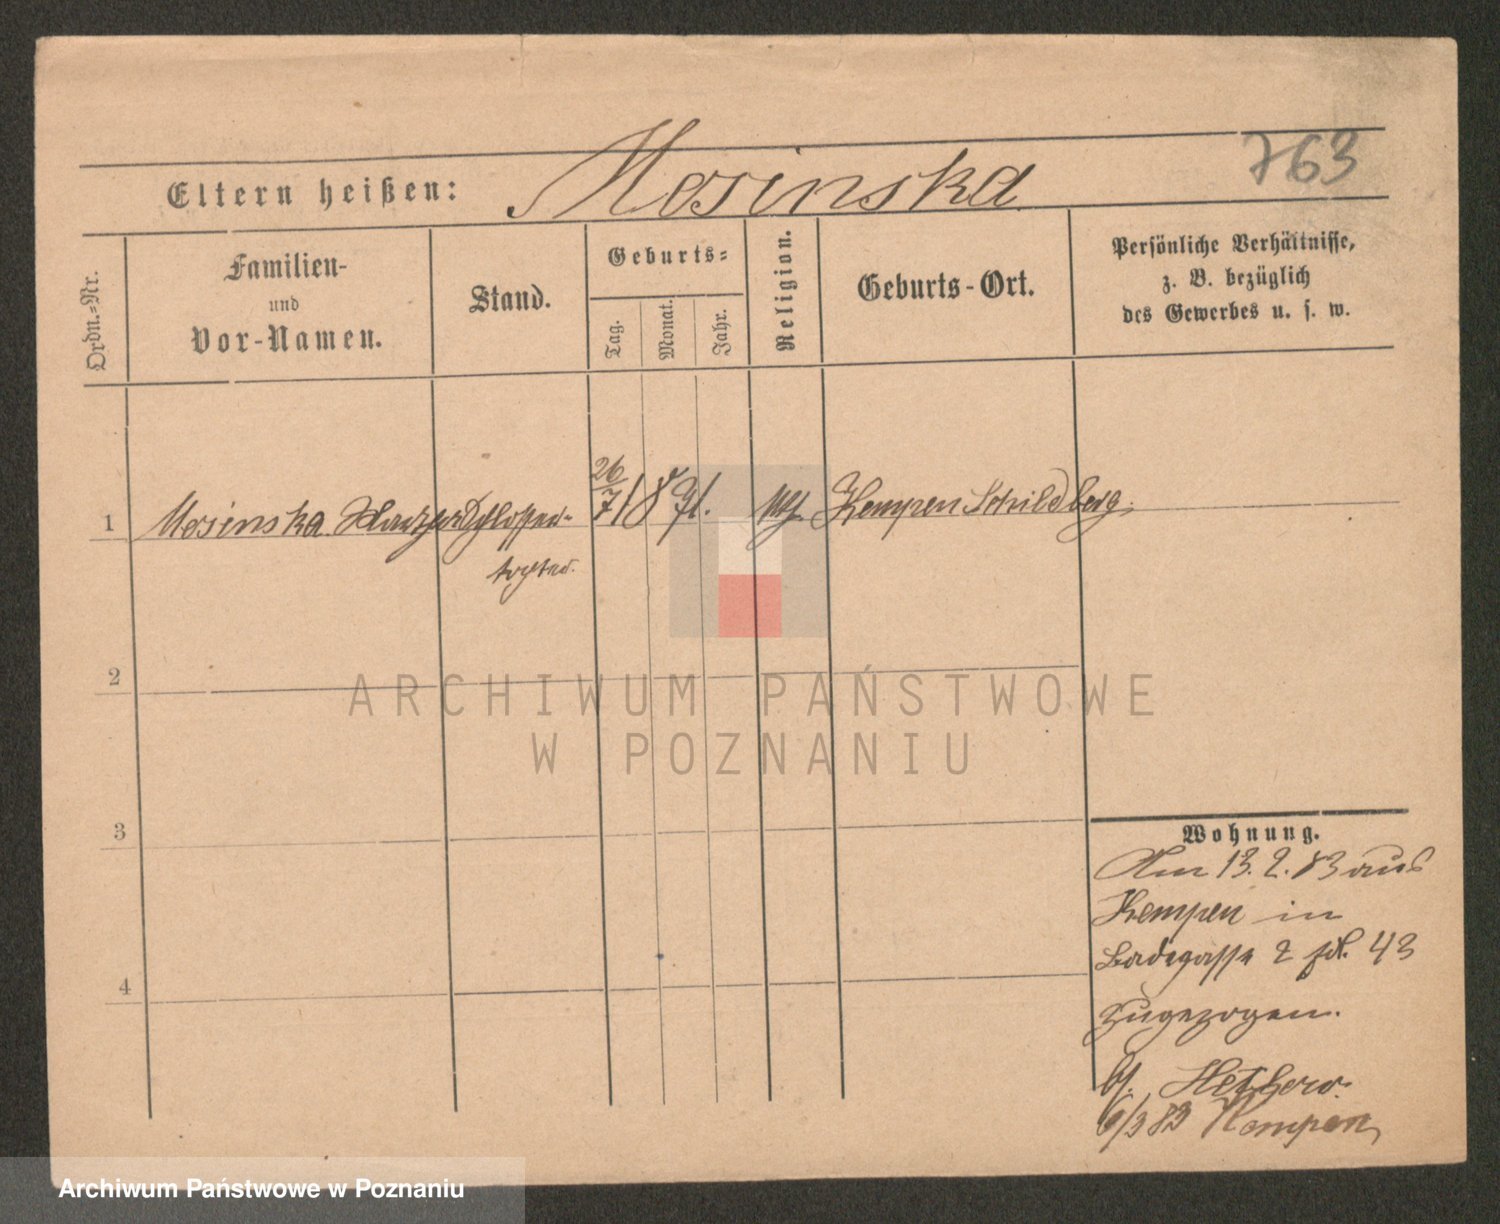 763
Eltern heißen: Mosinska
Ordn.-Nr.
Familien-
und
Vor-Namen.
Stand.
Geburts-
Tag.
Monat.
Jahr.
Religion.
Geburts-Ort.
Persönliche Verhältnisse,
z. B. bezüglich
des Gewerbes u. s. w.
1 Mosinska Schlosser- 26/7 1871. Kempen Schildberg.
tochter.
2
3
4
ARCHIWUM PAŃSTWOWE
W POZNANIU
Wohnung.
Am 13.2.83 aus
Kempen in
Badegasse 2 43
zugezogen.
6/3 83 Kempen
Archiwum Państwowe w Poznaniu